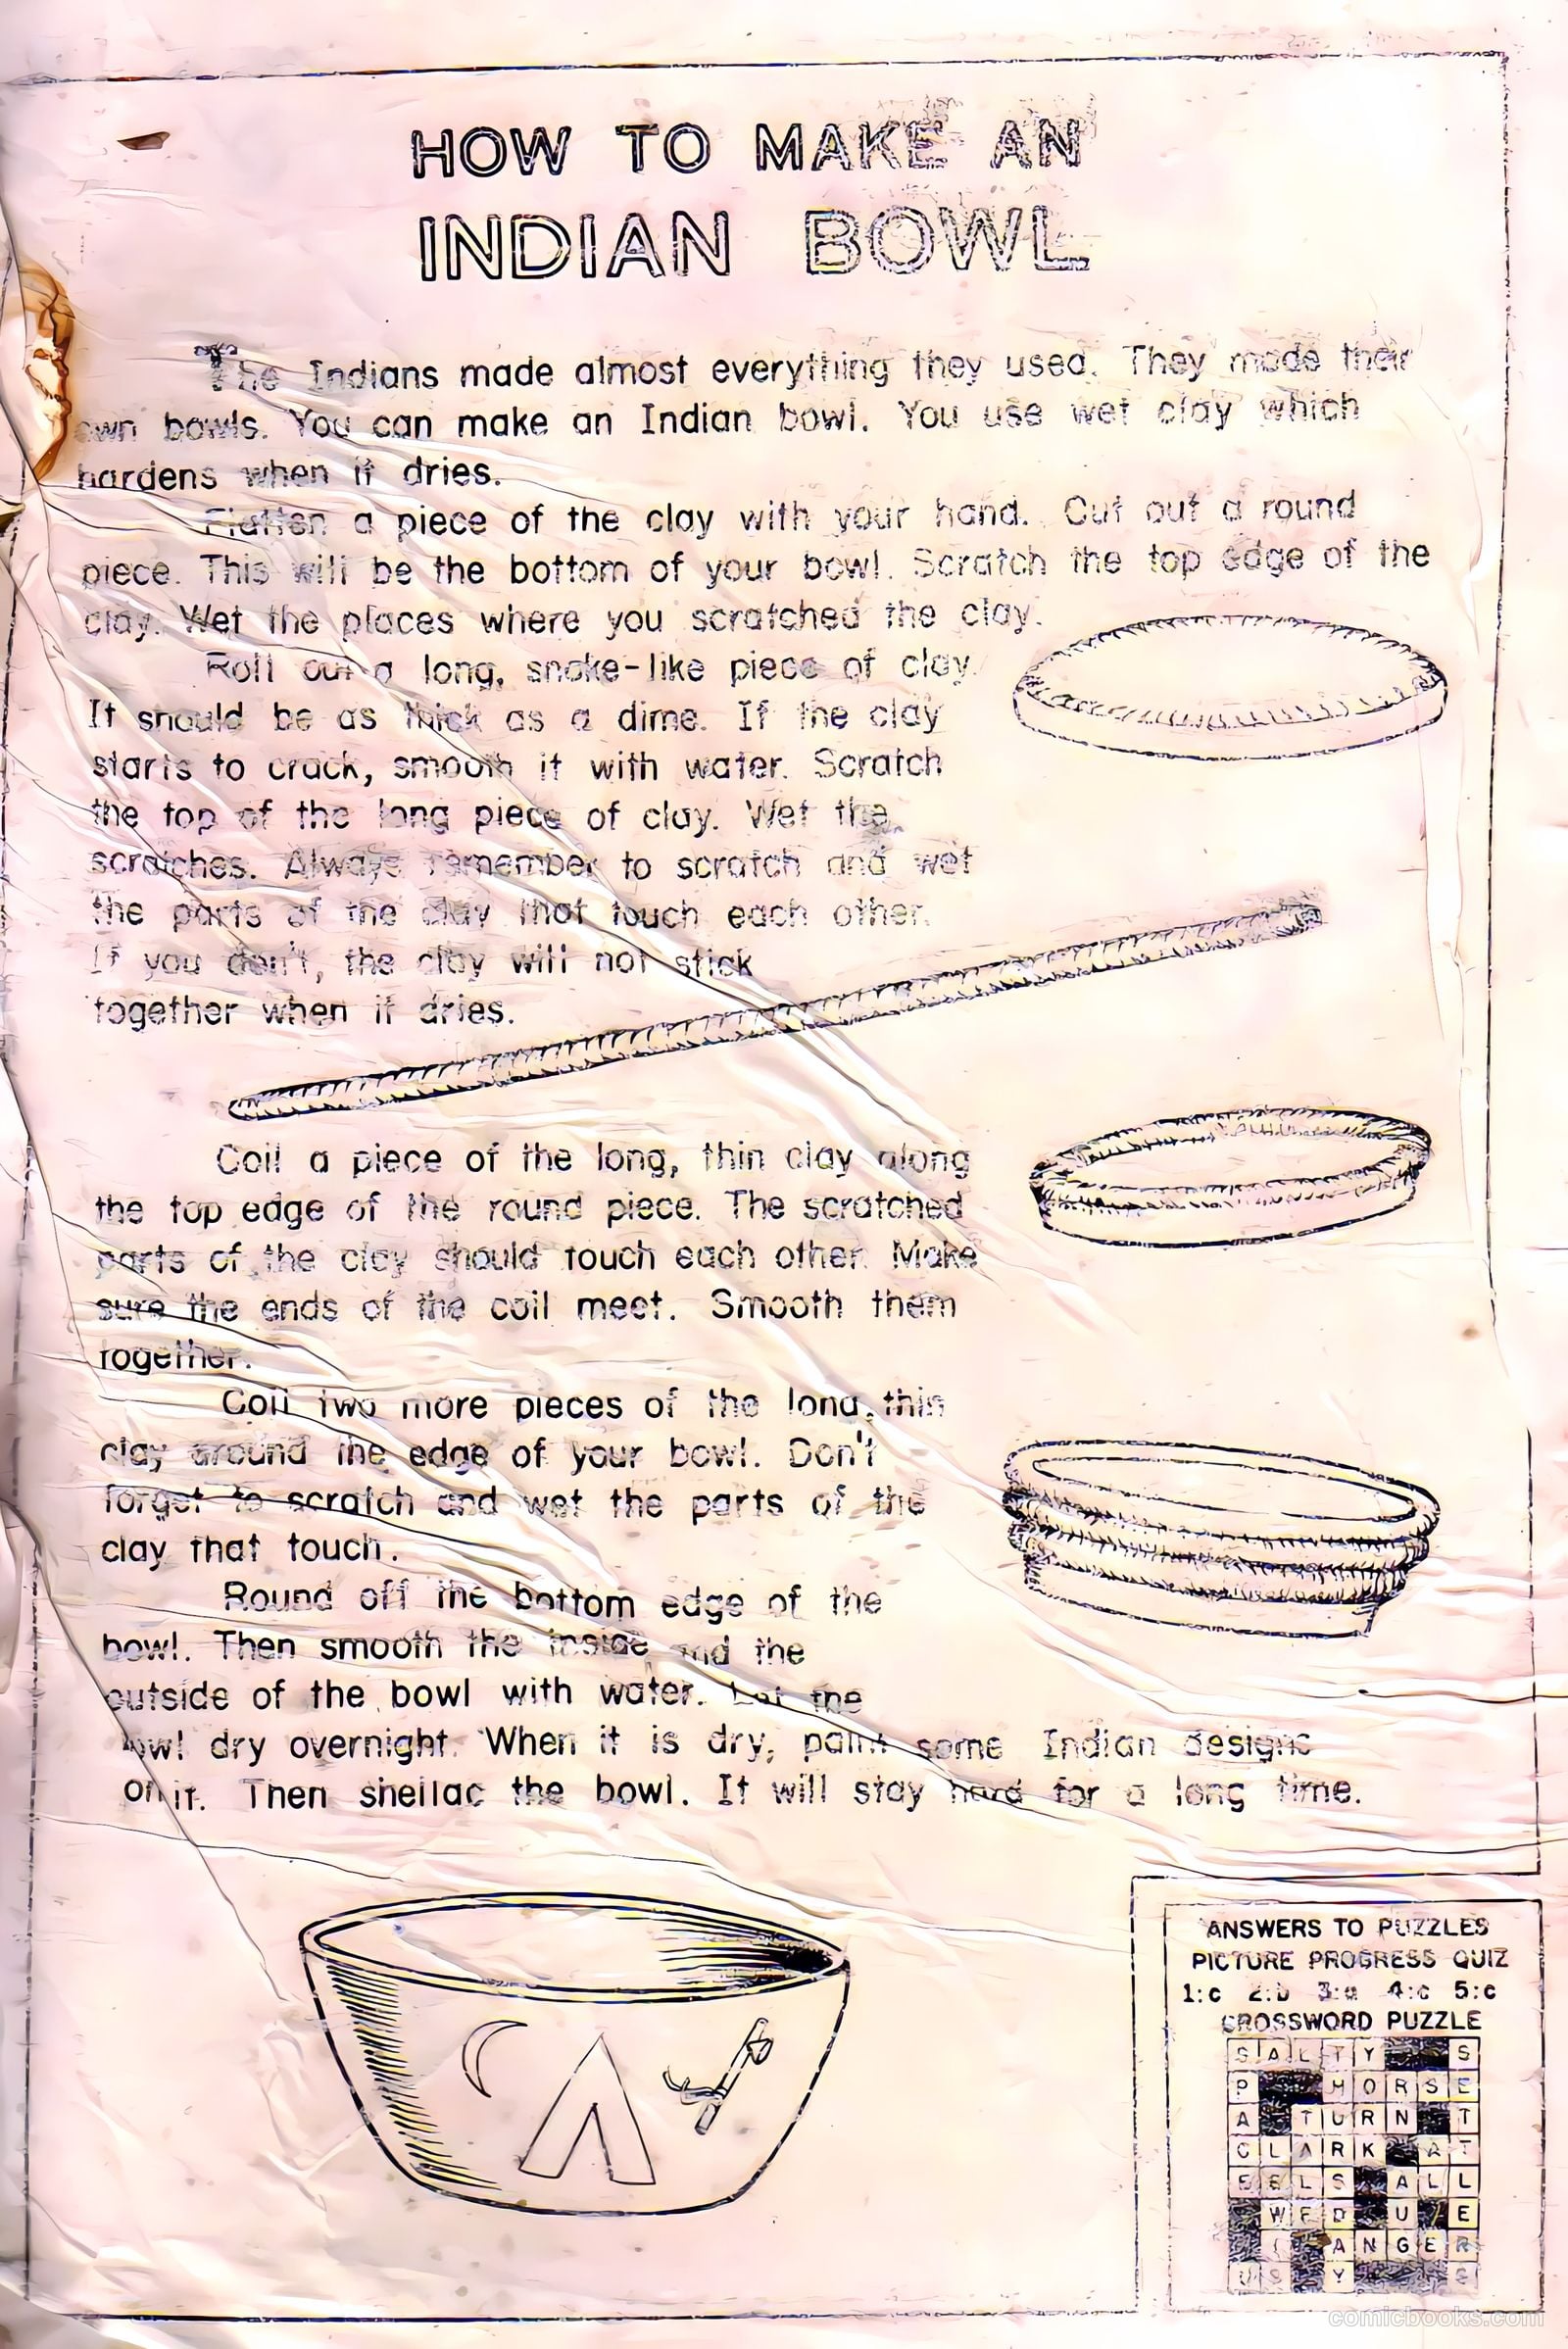 HOW TO MAKE AN
INDIAN BOWL
The Indians made almost everything they used. They made their
own bowls. You can make an Indian bowl. You use wet clay which
hardens when it dries.
Flatten a piece of the clay with your hand. Cut out a round
piece. This will be the bottom of your bowl. Scratch the top edge of the
clay. Wet the places where you scratched the clay.
Roll out a long, snake-like piece of clay.
It should be as thick as a dime. If the clay
starts to crack, smooth it with water. Scratch
the top of the long piece of clay. Wet the
scratches. Always remember to scratch and wet
the parts of the clay that touch each other.
If you don't, the clay will not stick
together when it dries.
Coil a piece of the long, thin clay along
the top edge of the round piece. The scratched
parts of the clay should touch each other. Make
sure the ends of the coil meet. Smooth them
together.
Coil two more pieces of the long, thin
clay around the edge of your bowl. Don't
forget to scratch and wet the parts of the
clay that touch.
Round off the bottom edge of the
bowl. Then smooth the inside and the
outside of the bowl with water. Let the
bowl dry overnight. When it is dry, paint some Indian designs
on it. Then shellac the bowl. It will stay hard for a long time.
ANSWERS TO PUZZLES
PICTURE PROGRESS QUIZ
1:c 2:b 3:a 4:c 5:c
CROSSWORD PUZZLE
S A L T Y S
P H O R S E
A T U R N T
C L A R K A T
E E L S A L L
W E D U E
A N G E R
U S Y S
comicbooks.com